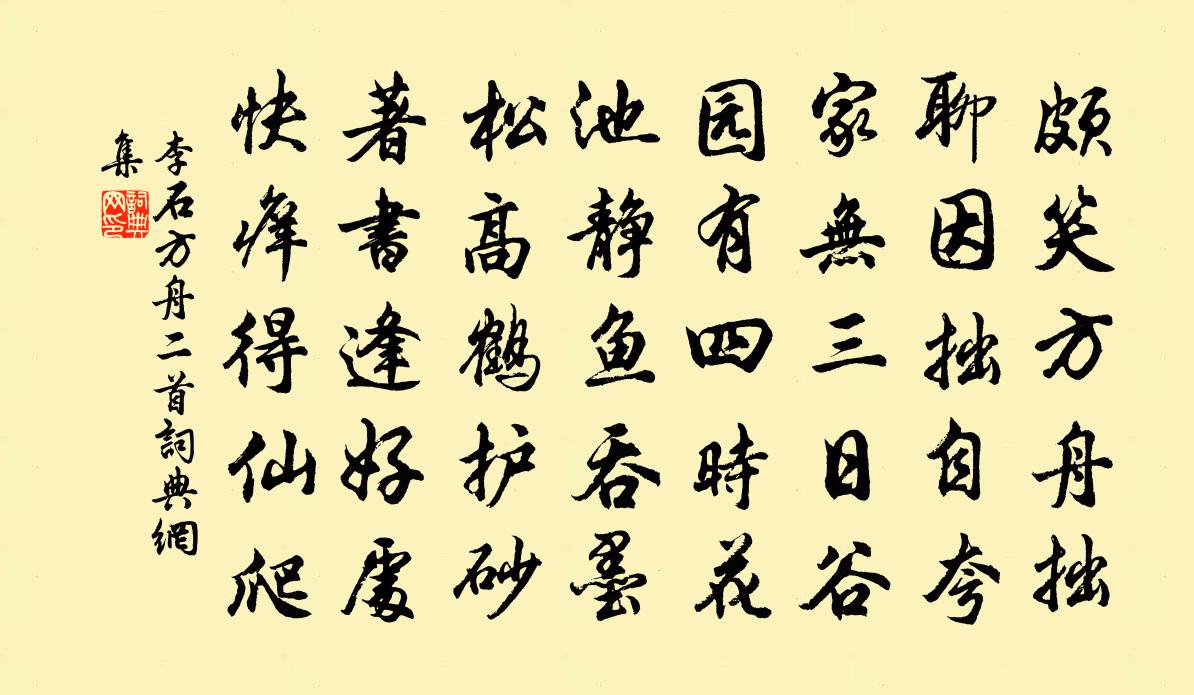 颇笑方舟拙
聊因拙自夸
家無三日谷
园有四時花
池静鱼吞墨
松高鶴护砂
著書逢好處
快癢得仙爬
李石方舟二首詞典網
集
詞典网印